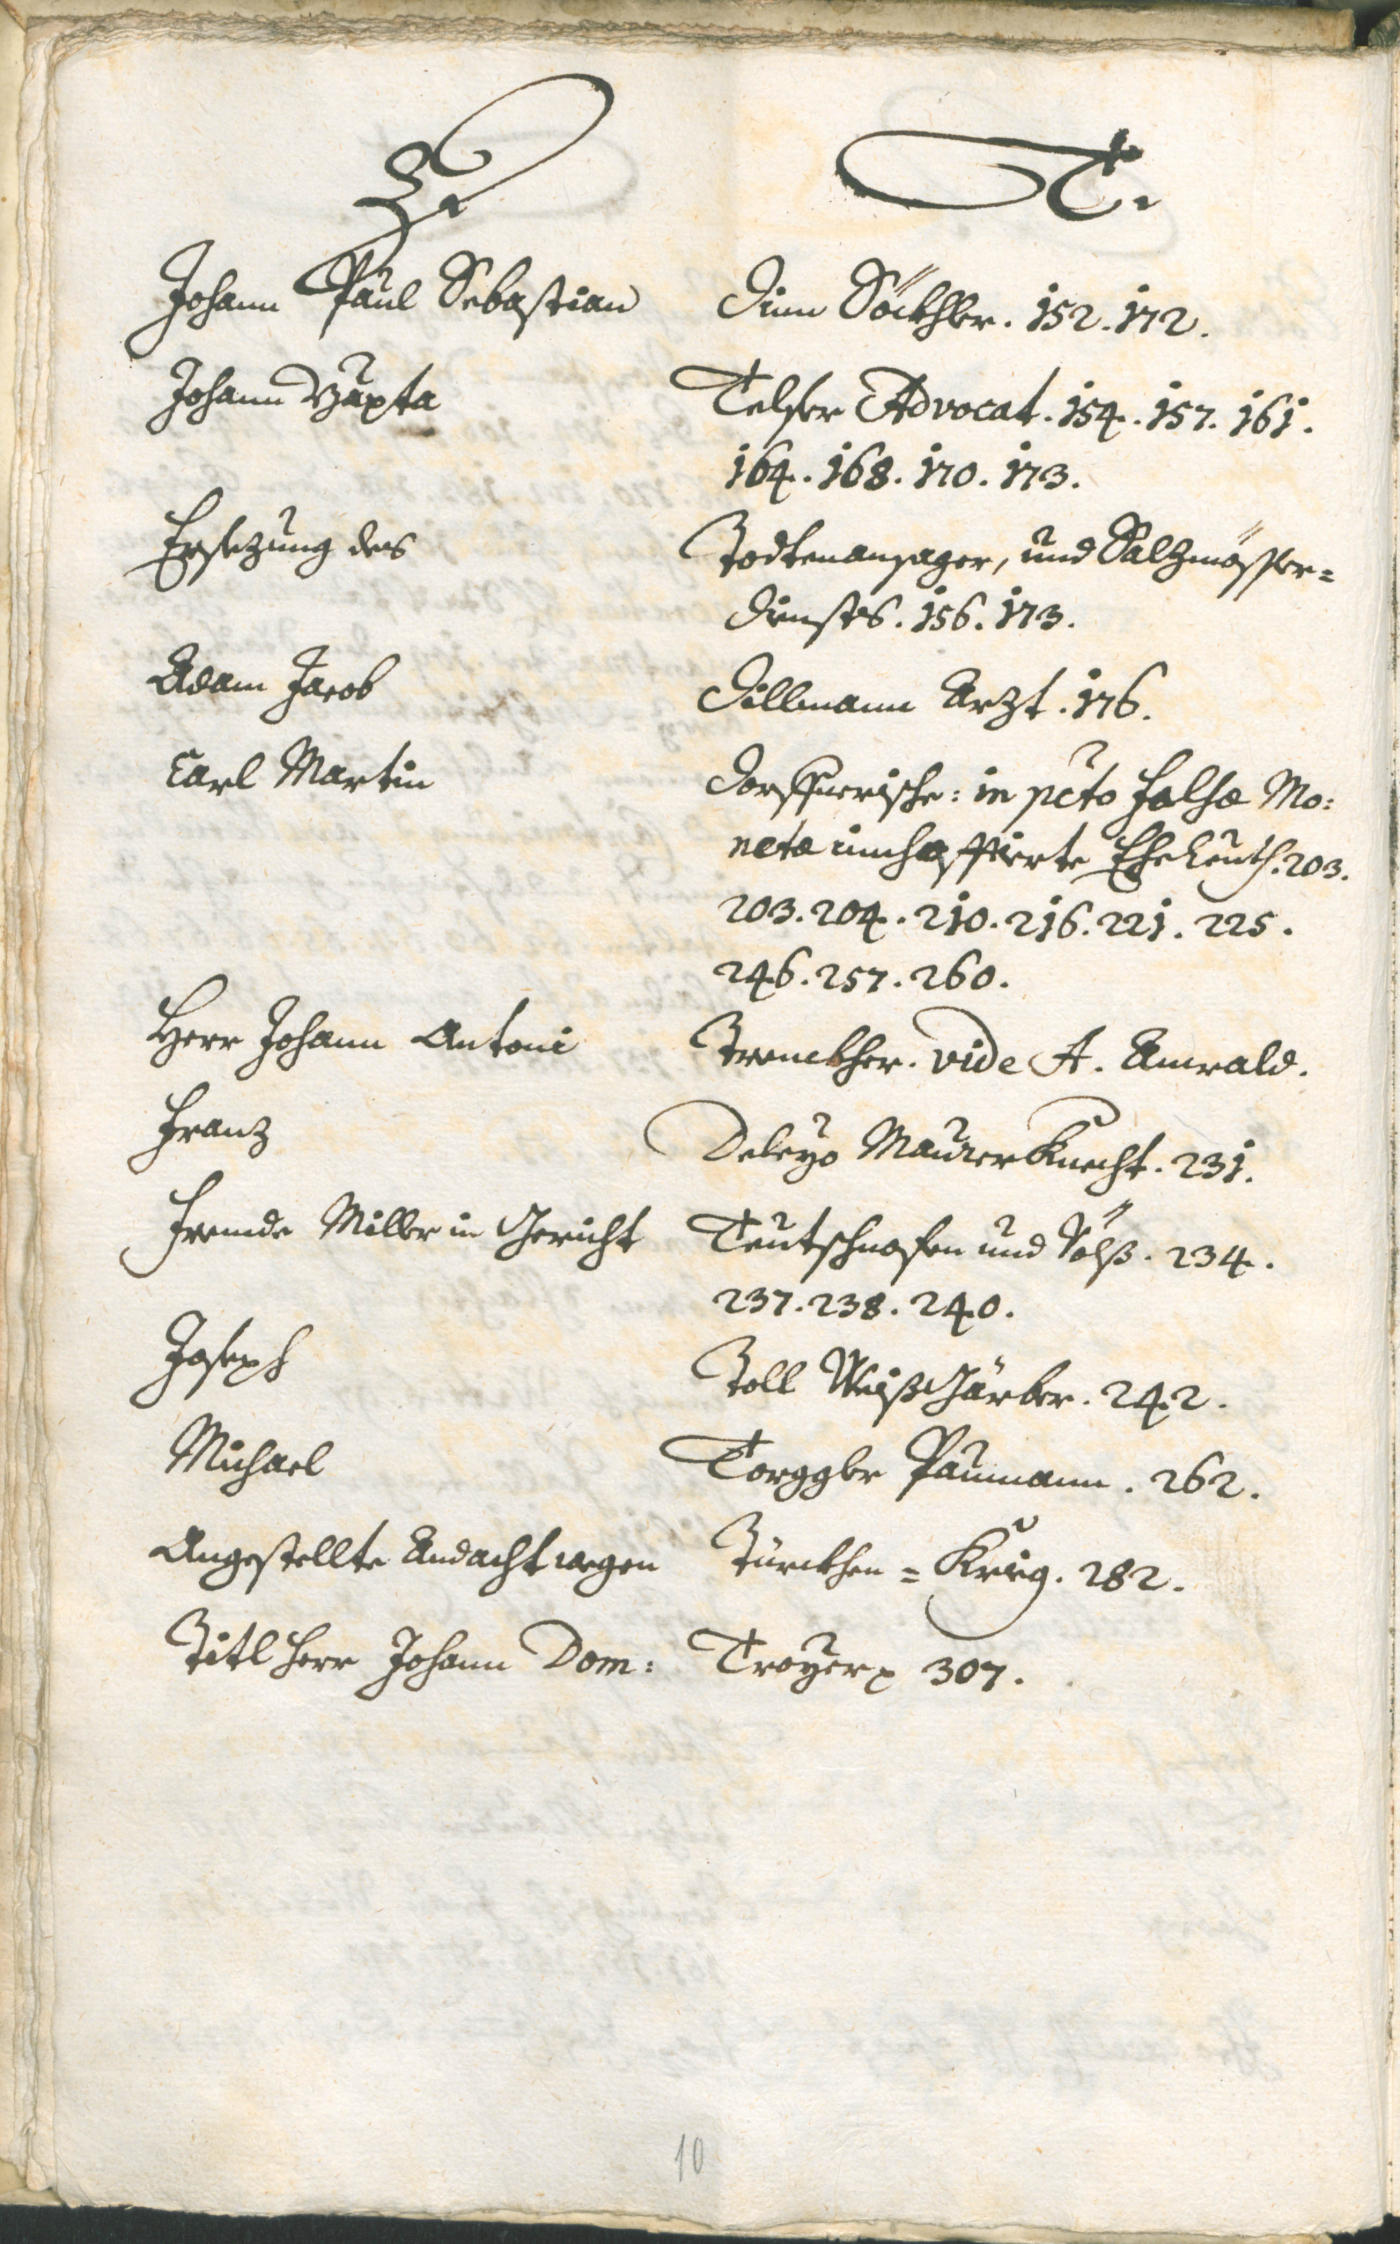 D. T.
Johann Paul Sebastian dinn Söckhler. 152. 172.
Johann Bapta Telser Advocat. 154. 157. 161.
164. 168. 170. 173.
Ersezung des Todtenansager, und Salzmösser=
diensts. 156. 173.
Adam Jacob Dillmann Arzt. 176.
Carl Martin Dorffnerische: in pcto falsæ Mo:
netæ inhaftierte EheLeuth. 203.
203. 204. 210. 216. 221. 225.
246. 257. 260.
Herr Johann Antoni Trenckher. vide A. Anwald.
Franz Deleyo Maurer Knecht. 231.
Fremde Miller in Gericht Teutschnofen und Völß. 234.
237. 238. 240.
Joseph Toll Weißgärber. 242.
Michael Torggler Paumann. 262.
Angestellte Andacht wegen Türckhen=Krieg. 282.
Titl Herr Johann Dom: Troyer 307.
10